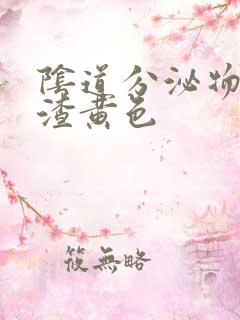 陰道分泌物
渣黃色
筱無略